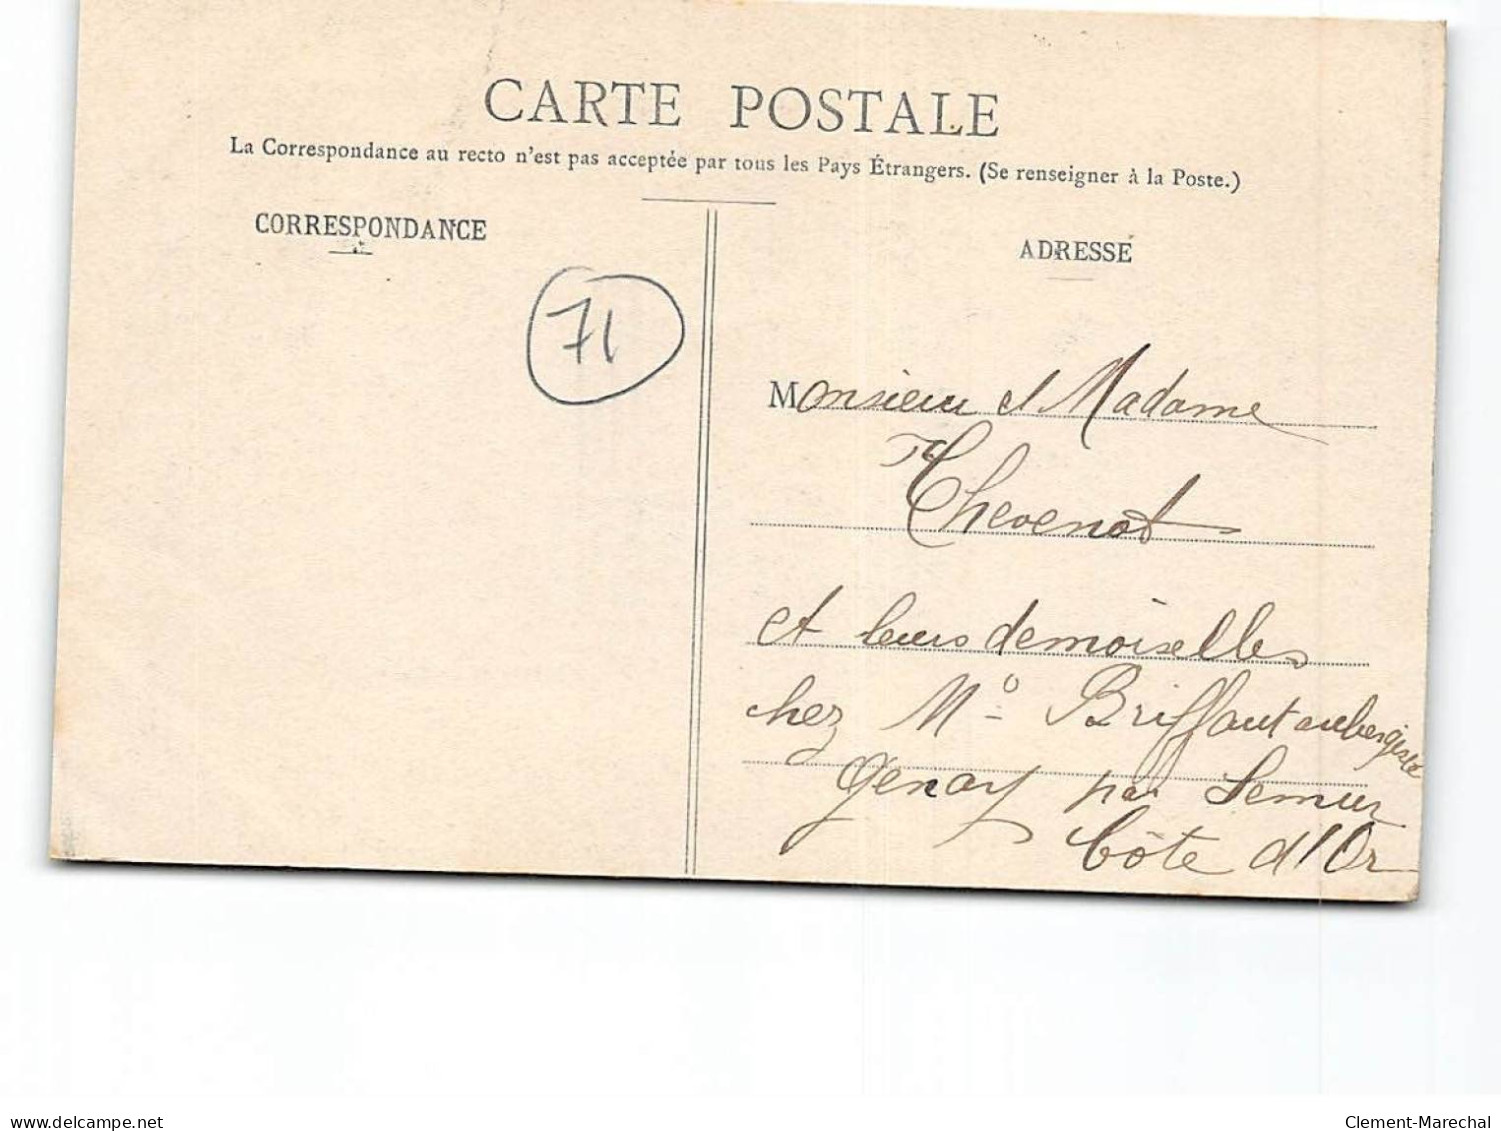 CARTE POSTALE
La Correspondance au recto n'est pas acceptée par tous les Pays Étrangers. (Se renseigner à la Poste.)
CORRESPONDANCE
71
ADRESSE
Monsieur et Madame
Thevenot
et leurs demoiselles
chez Mº Briffaut aubergiste
Genay par Semur
Côte d'Or
delcampe.net
Clement-Marechal